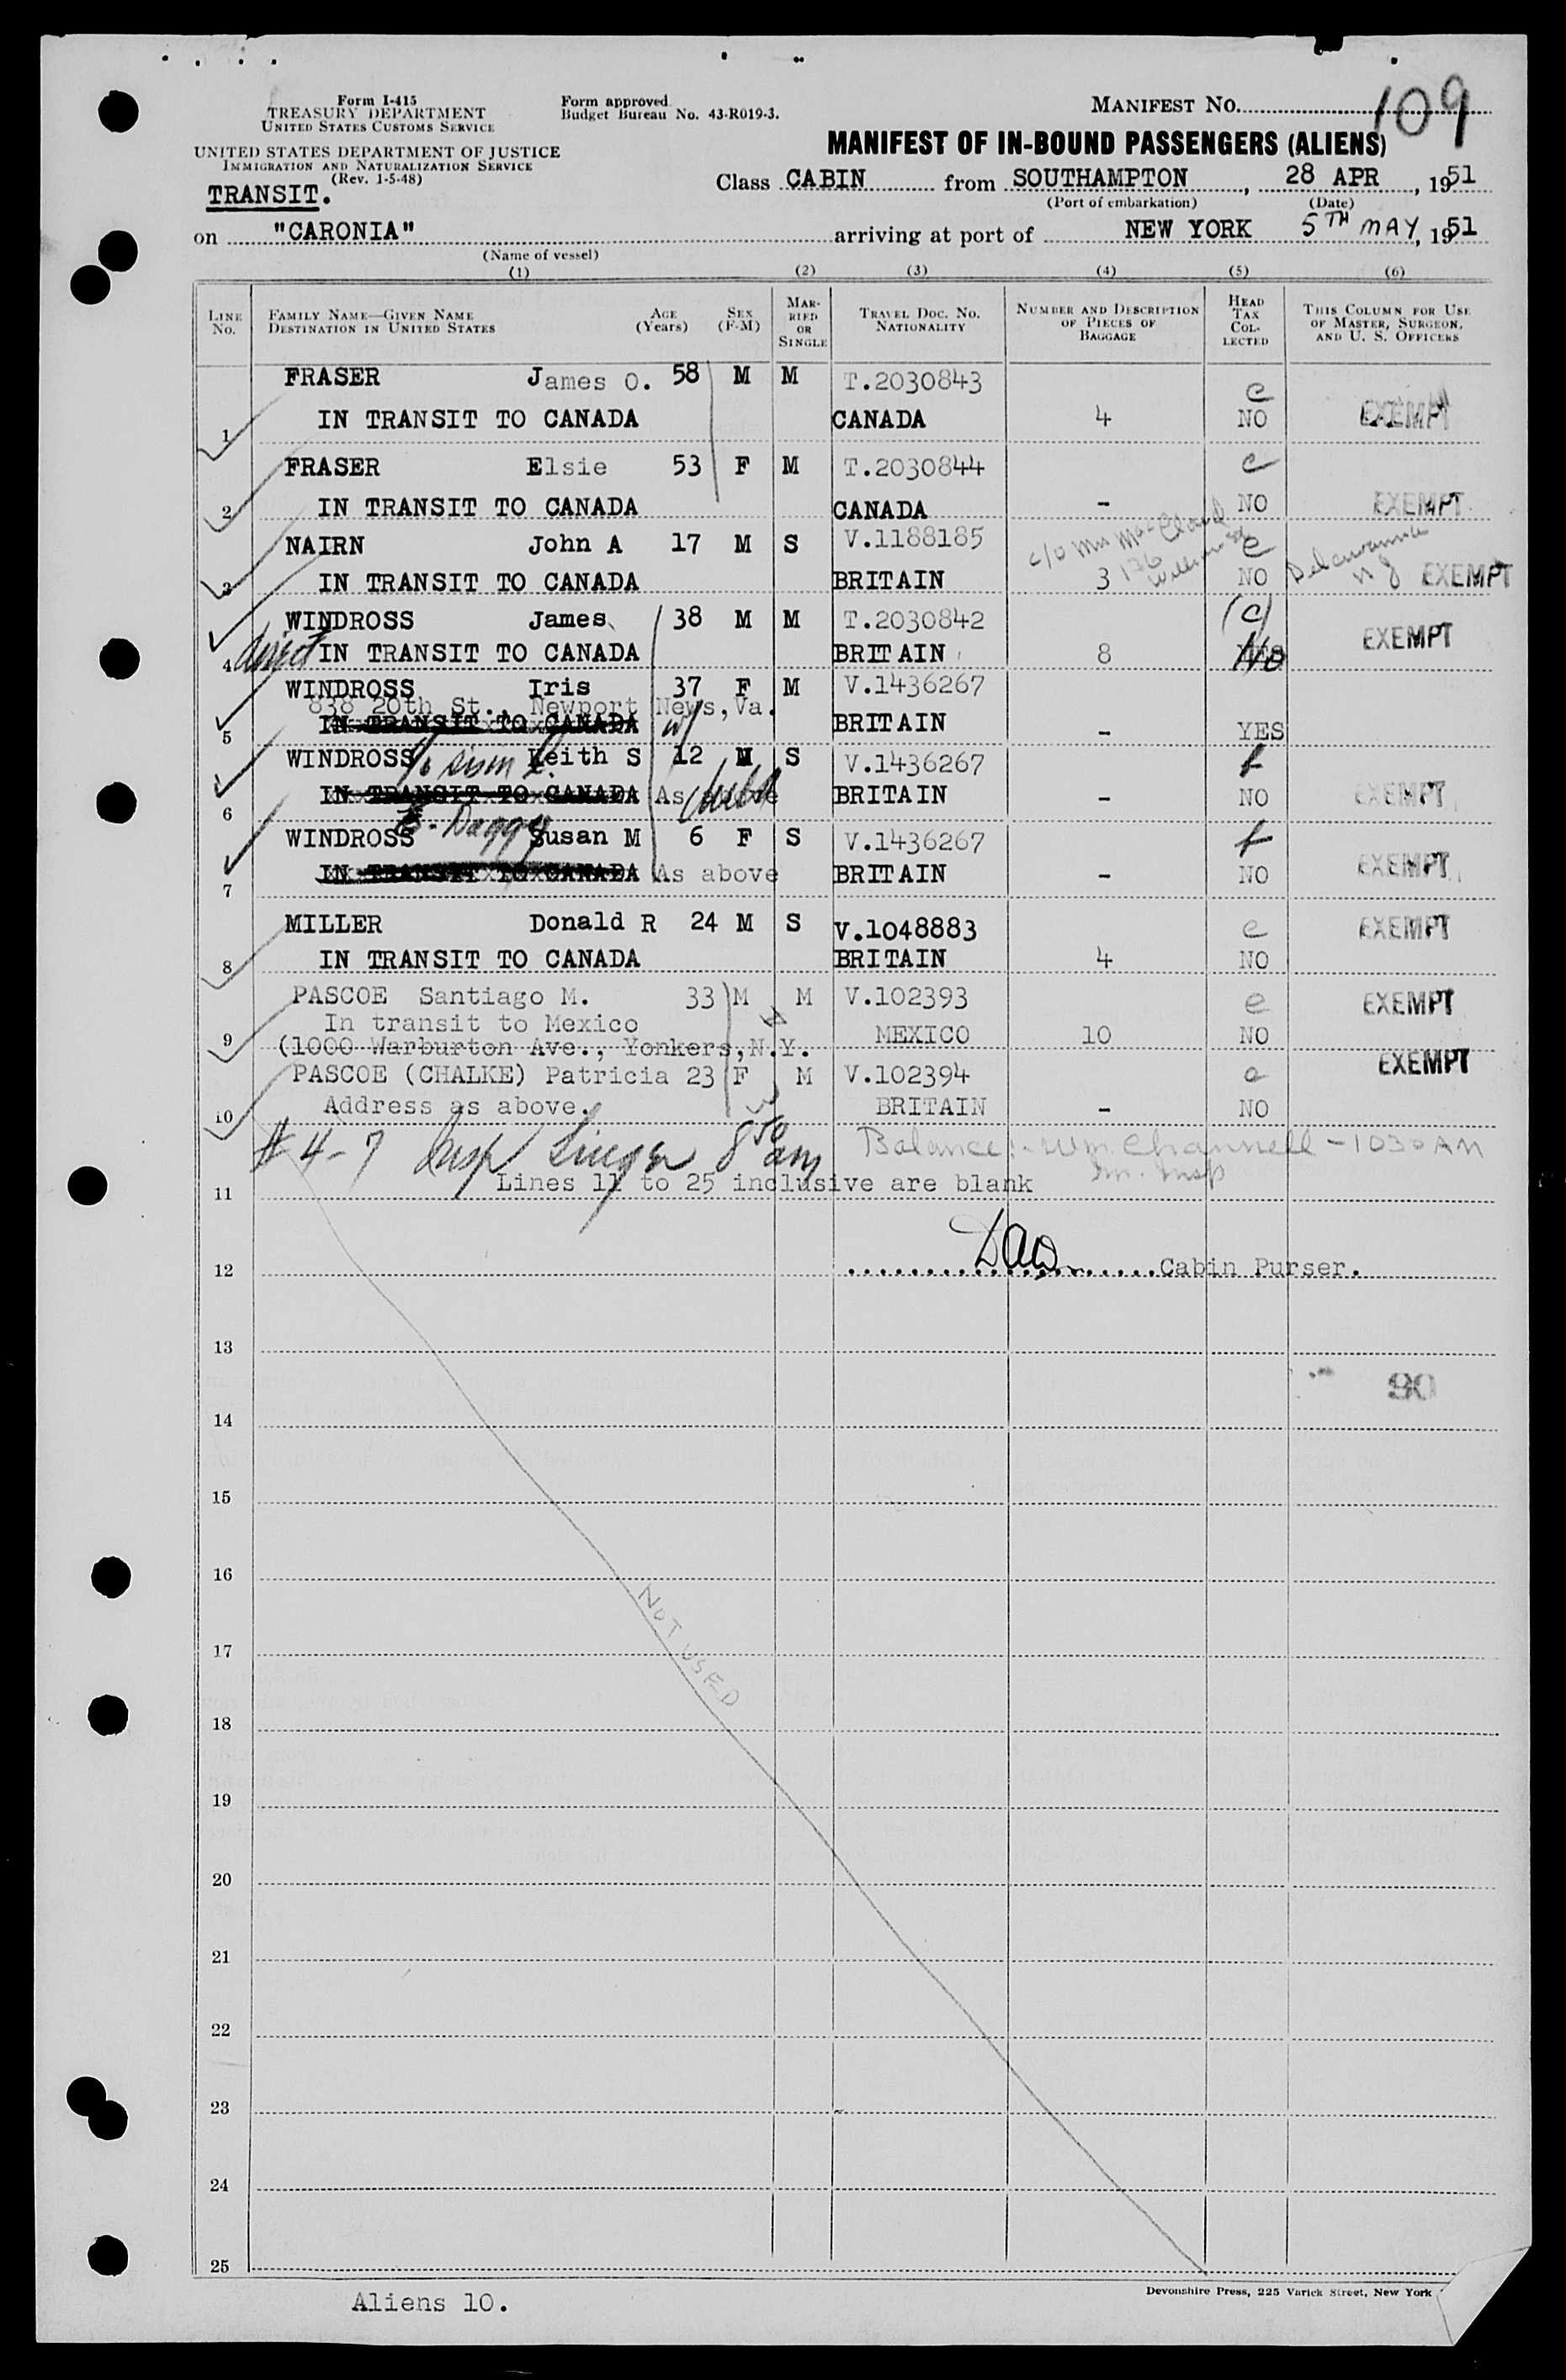 Form I-415
TREASURY DEPARTMENT
UNITED STATES CUSTOMS SERVICE
UNITED STATES DEPARTMENT OF JUSTICE
IMMIGRATION AND NATURALIZATION SERVICE
(Rev. 1-5-48)
TRANSIT.
Form approved.
Budget Bureau No. 43-R019-3.
MANIFEST NO. 109
MANIFEST OF IN-BOUND PASSENGERS (ALIENS)
Class CABIN from SOUTHAMPTON, 28 APR, 1951
(Port of embarkation) (Date)
on "CARONIA" arriving at port of NEW YORK 5TH MAY, 1951
(Name of vessel)
(1) (2) (3) (4) (5) (6)
LINE NO. FAMILY NAME—GIVEN NAME DESTINATION IN UNITED STATES AGE (Years) SEX (F-M) MARRIED OR SINGLE TRAVEL DOC. NO. NATIONALITY NUMBER AND DESCRIPTION OF PIECES OF BAGGAGE HEAD TAX COLLECTED THIS COLUMN FOR USE OF MASTER, SURGEON, AND U. S. OFFICERS
FRASER James O. 58 M M T.2030843 e
1 IN TRANSIT TO CANADA CANADA 4 NO EXEMPT
FRASER Elsie 53 F M T.2030844 e
2 IN TRANSIT TO CANADA CANADA - NO EXEMPT
NAIRN John A 17 M S V.1188185 c/o Mrs 136 e
3 IN TRANSIT TO CANADA BRITAIN 3 NO N J EXEMPT
WINDROSS James 38 M M T.2030842 (c) EXEMPT
4 direct IN TRANSIT TO CANADA BRITAIN 8 No
WINDROSS Iris 37 F M V.1436267
838 20th St., Newport News, Va.
5 IN TRANSIT TO CANADA BRITAIN - YES
WINDROSS Keith S 12 M S V.1436267
6 IN TRANSIT TO CANADA As above BRITAIN - NO EXEMPT
WINDROSS Susan M 6 F S V.1436267
7 IN TRANSIT TO CANADA As above BRITAIN - NO EXEMPT
MILLER Donald R 24 M S V.1048883 e EXEMPT
8 IN TRANSIT TO CANADA BRITAIN 4 NO
PASCOE Santiago M. 33 M M V.102393 e EXEMPT
In transit to Mexico
9 (1000 Warburton Ave., Yonkers, N.Y. MEXICO 10 NO
PASCOE (CHALKE) Patricia 23 F M V.102394 e EXEMPT
10 Address as above. BRITAIN - NO
# 4-7 Insp 8 50 am Balance:- Wm. Channell - 1030 AM
Im. Insp
11 Lines 11 to 25 inclusive are blank
12 Cabin Purser.
13
90
14
15
16
NOT USED
17
18
19
20
21
22
23
24
25
Devonshire Press, 225 Varick Street, New York
Aliens 10.